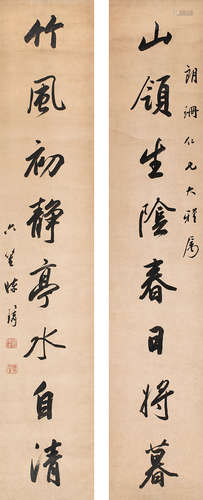 山領生陰春日將暮
朗珊仁兄大雅屬
竹風初靜亭水自清
六笙陳璚